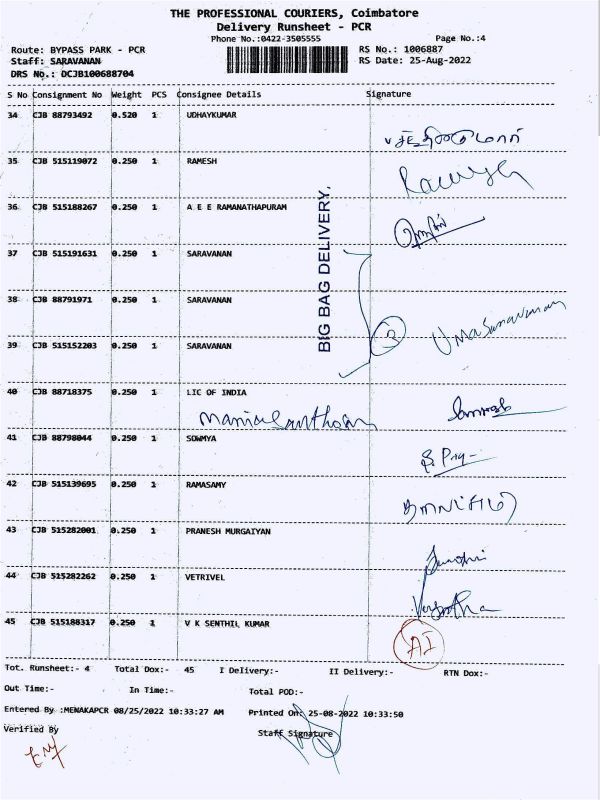 THE PROFESSIONAL COURIERS, Coimbatore
Delivery Runsheet - PCR
Phone No.:0422-3505555 Page No.:4
Route: BYPASS PARK - PCR RS No.: 1006887
Staff: SARAVANAN RS Date: 25-Aug-2022
DRS No.: DCJB100688704
S No Consignment No Weight PCS Consignee Details Signature
34 CJB 88793492 0.520 1 UDHAYKUMAR
35 CJB 515119072 0.250 1 RAMESH
36 CJB 515188267 0.250 1 A E E RAMANATHAPURAM
BIG BAG DELIVERY,
37 CJB 515191631 0.250 1 SARAVANAN
38 CJB 88791971 0.250 1 SARAVANAN
3 Uma Saravanan
39 CJB 515152203 0.250 1 SARAVANAN
40 CJB 88718375 0.250 1 LIC OF INDIA
41 CJB 88798044 0.250 1 SOWMYA
42 CJB 515139695 0.250 1 RAMASAMY
43 CJB 515282001 0.250 1 PRANESH MURGAIYAN
44 CJB 515282262 0.250 1 VETRIVEL
45 CJB 515188317 0.250 1 V K SENTHIL KUMAR
AI
Tot. Runsheet:- 4 Total Dox:- 45 I Delivery:- II Delivery:- RTN Dox:-
Out Time:- In Time:- Total POD:-
Entered By :MENAKAPCR 08/25/2022 10:33:27 AM Printed On: 25-08-2022 10:33:50
Verified By Staff Signature